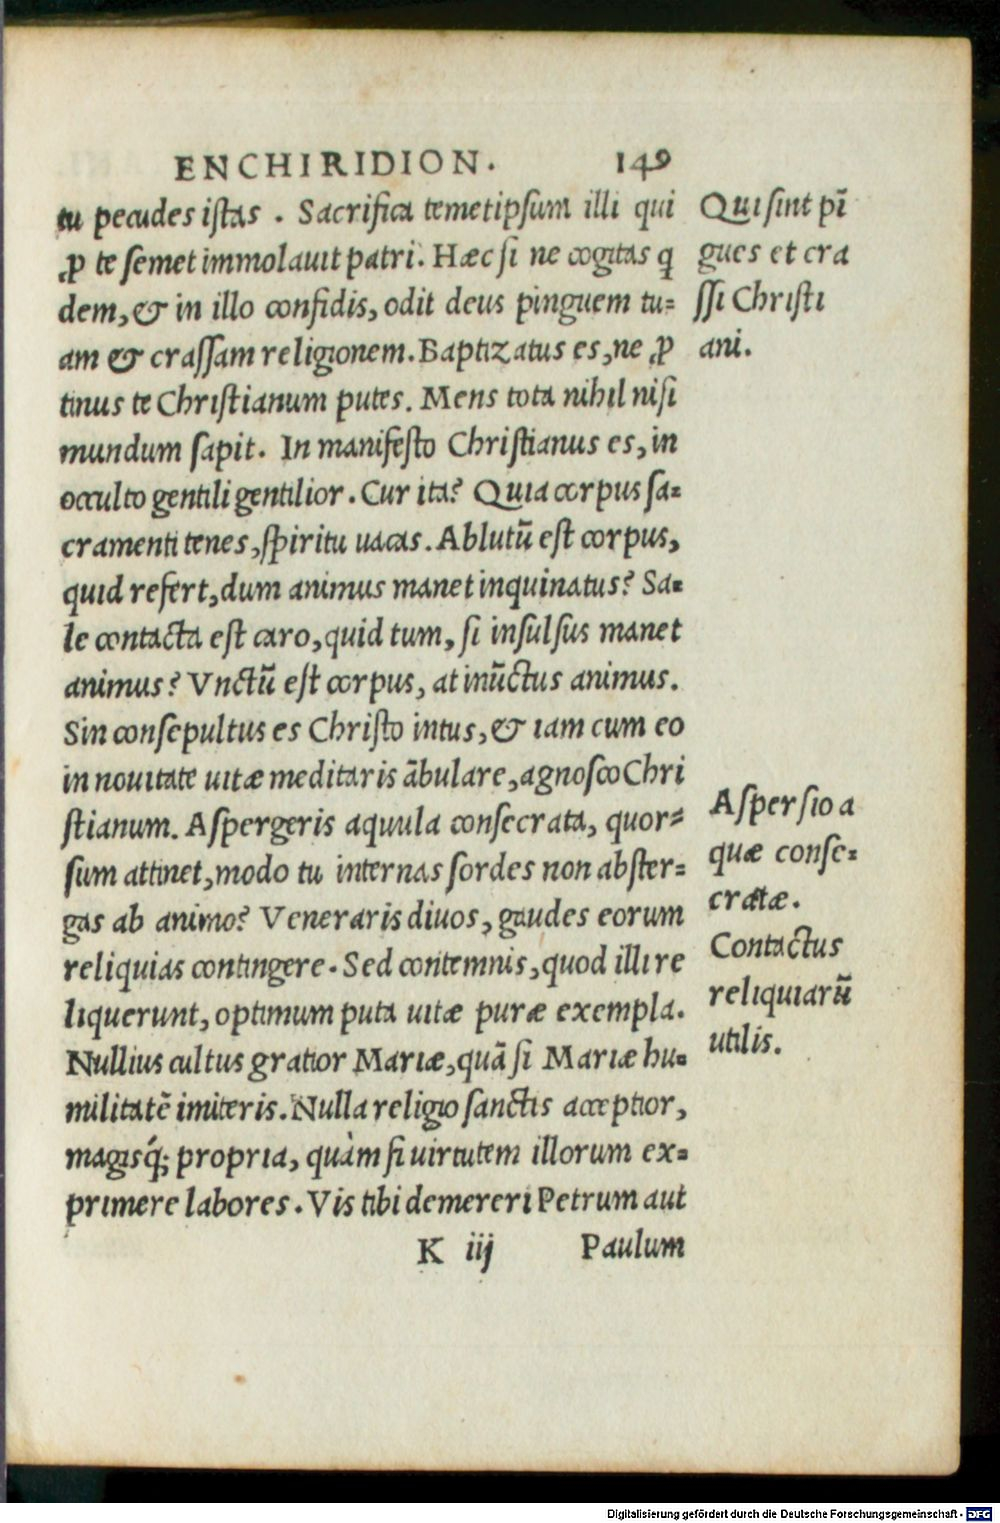 ENCHIRIDION. 149
tu pecudes istas . Sacrifica temetipsum illi qui
ꝓ te semet immolauit patri. Hæc si ne cogitas q̃
dem, & in illo confidis, odit deus pinguem tu=
am & crassam religionem. Baptizatus es, ne ꝓ
tinus te Christianum putes. Mens tota nihil nisi
mundum sapit. In manifesto Christianus es, in
occulto gentili gentilior. Cur ita? Quia corpus sa=
cramenti tenes, spiritu uacas. Ablutū est corpus,
quid refert, dum animus manet inquinatus? Sa=
le contacta est caro, quid tum, si insulsus manet
animus? Vnctū est corpus, at inūctus animus.
Sin consepultus es Christo intus, & iam cum eo
in nouitate uitæ meditaris ābulare, agnosco Chri
stianum. Aspergeris aquula consecrata, quor=
sum attinet, modo tu internas sordes non abster=
gas ab animo? Veneraris diuos, gaudes eorum
reliquias contingere. Sed contemnis, quod illi re
liquerunt, optimum puta uitæ puræ exempla.
Nullius cultus gratior Mariæ, quā si Mariæ hu=
militatē imiteris. Nulla religio sanctis acceptior,
magisq́; propria, quàm si uirtutem illorum ex=
primere labores. Vis tibi demereri Petrum aut
K iij Paulum
Qui sint pī
gues et cra
ssi Christi
ani.
Aspersio a
quæ conse=
cratæ.
Contactus
reliquiarū
utilis.
Digitalisierung gefördert durch die Deutsche Forschungsgemeinschaft - DFG